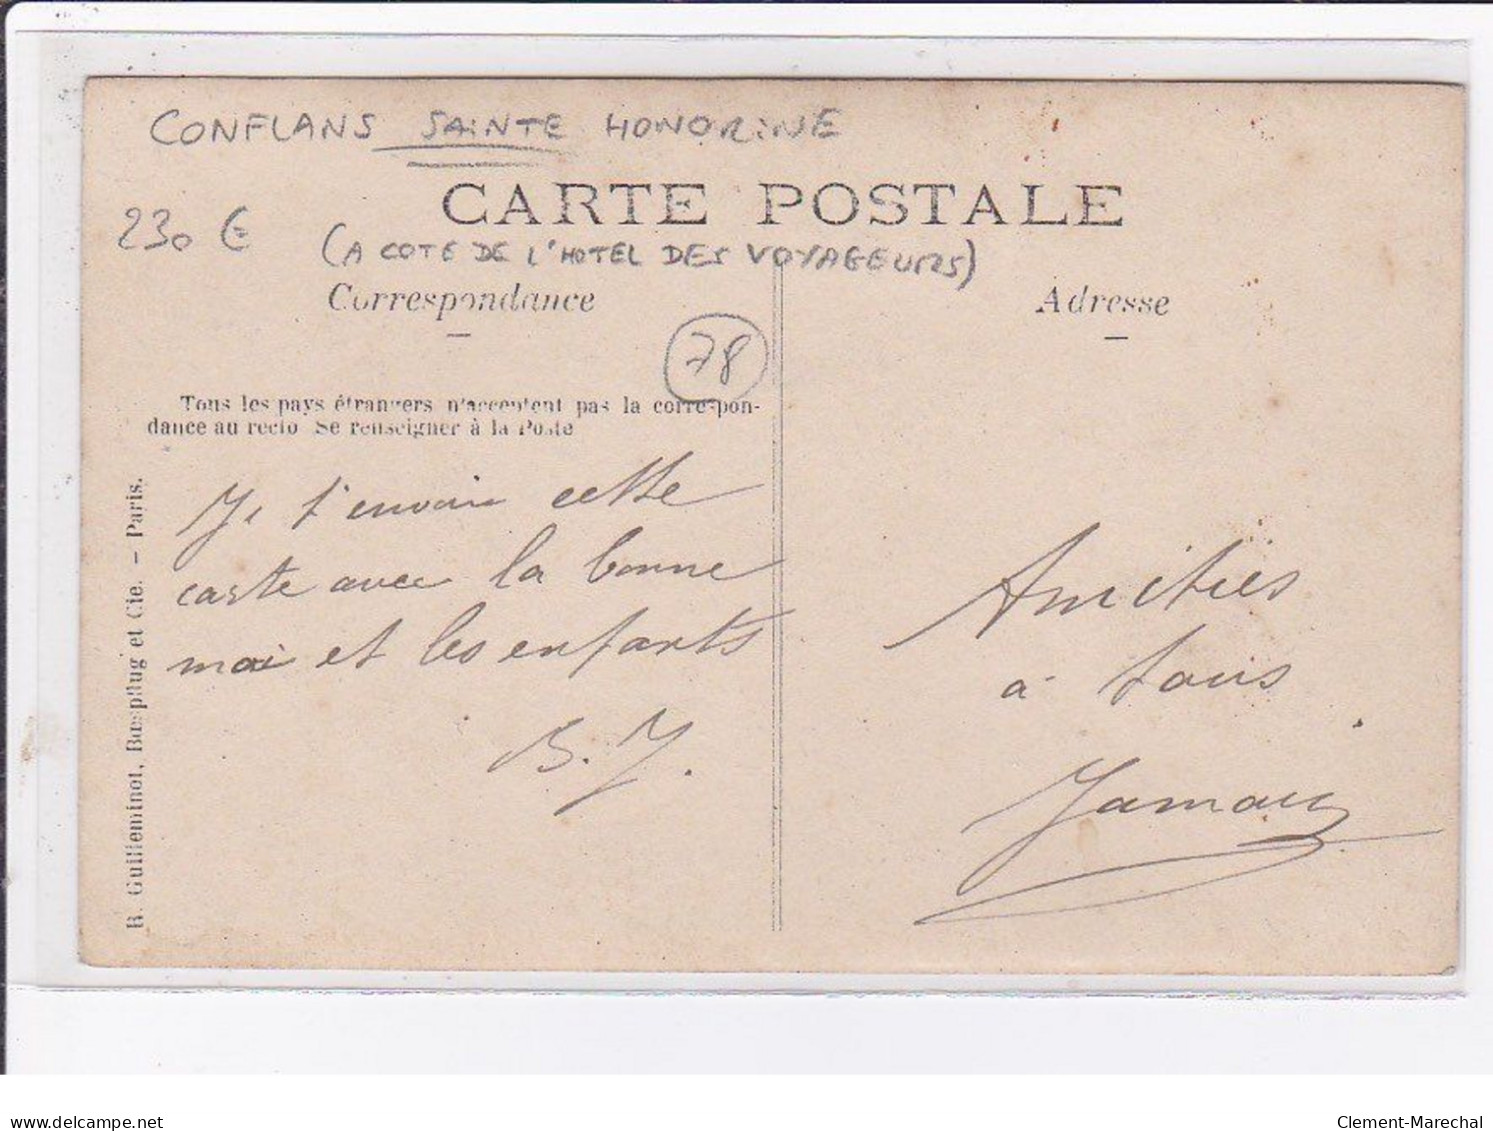 CONFLANS SAINTE HONORINE
CARTE POSTALE
230 €
(A COTE DE L'HOTEL DES VOYAGEURS)
Correspondance
Adresse
78
Tous les pays étrangers n'acceptent pas la correspon-
dance au recto Se renseigner à la Poste
R. Guilleminot, Bœspflug et Cie. – Paris.
Je t'envoie cette
carte avec la bonne
moi et les enfants
B. J.
Amitiés
à tous
delcampe.net
Clement-Marechal